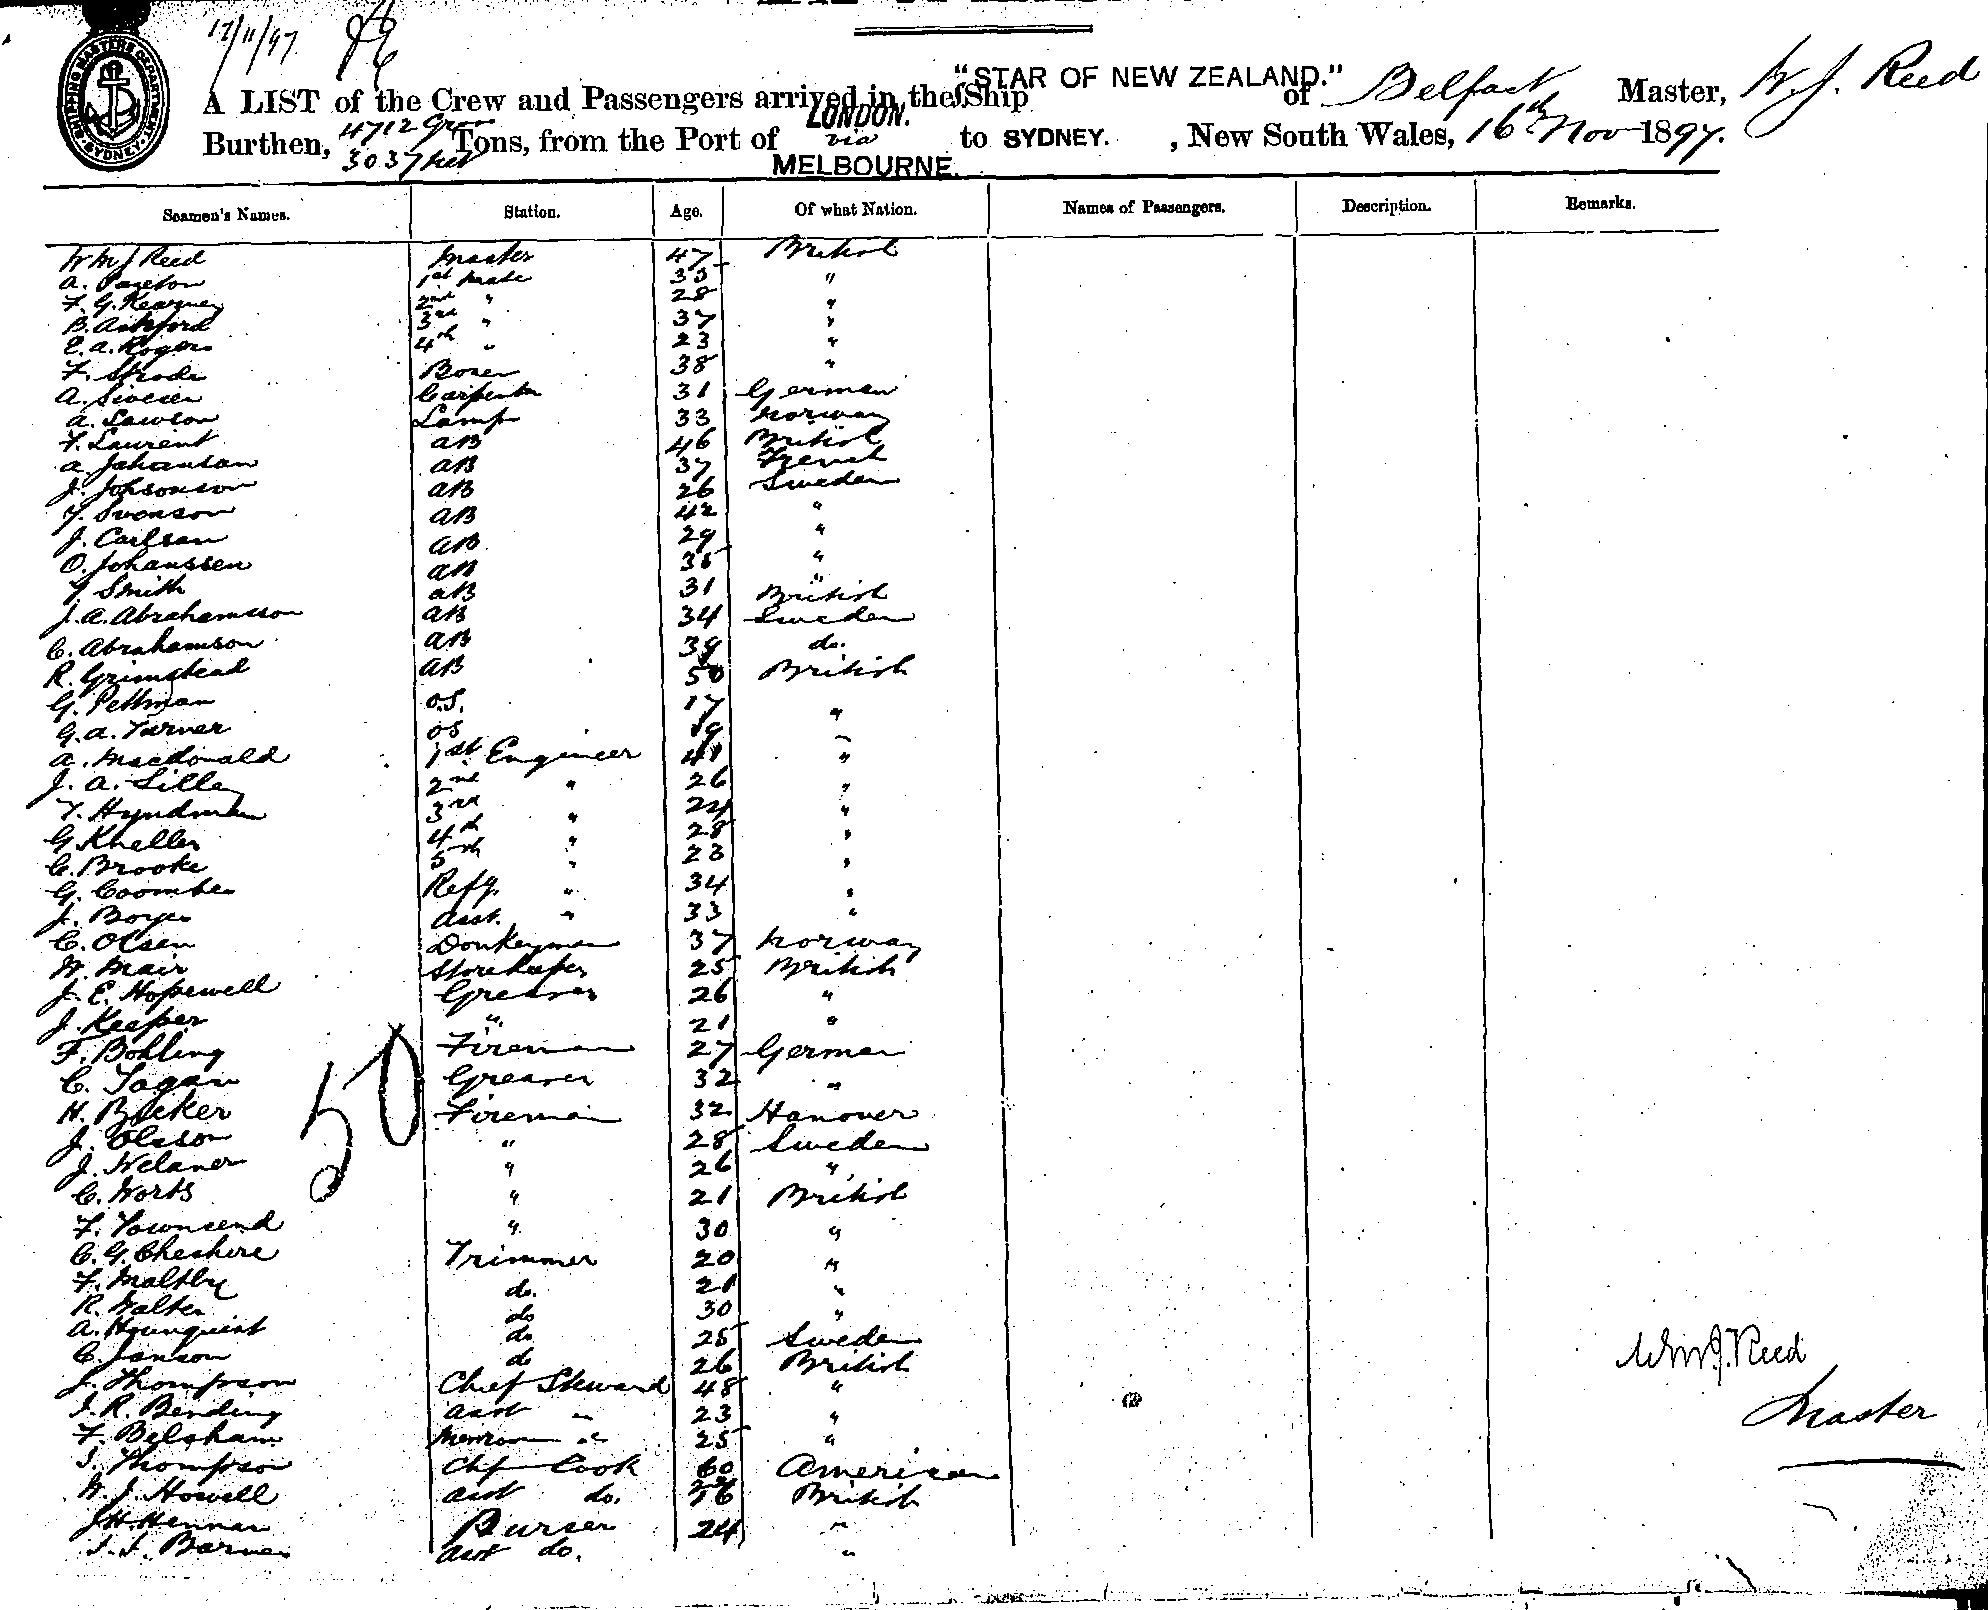 17/11/97
SHIPPING MASTERS DEPARTMENT SYDNEY
A LIST of the Crew and Passengers arrived in the Ship "STAR OF NEW ZEALAND." of Belfast Master, W. J. Reed
Burthen, 4712 Gross 3037 net Tons, from the Port of LONDON. via MELBOURNE. to SYDNEY. , New South Wales, 16th Nov 1897.
Seamen's Names. Station. Age. Of what Nation. Names of Passengers. Description. Remarks.
Wm J Reed Master 47 British
A. 1st Mate 35 "
F. G. Kearney 2nd " 28 "
B. Ashford 3rd " 37 "
E. A. Rogers 4th " 23 "
F. Strode Bosen 38 "
A. Carpenter 31 German
A. Lawson Lamps 33 Norway
F. Laurent AB 46 British
A. Johanson AB 37 French
J. AB 26 Sweden
F. Svonson AB 42 "
J. Carlson AB 29 "
O. Johanssen AB 35 "
F. Smith AB 31 British
J. A. Abrahamsson AB 34 Sweden
C. Abrahamson AB 39 do.
R. Grimstead AB 50 British
G. Pettman O.S. 17 "
G. A. Turner OS 19 "
A. Macdonald 1st Engineer 41 "
J. A. Lilley 2nd " 26 "
T. Hyndman 3rd " 24 "
G. Kheller 4th " 28 "
C. Brooke 5th " 23 "
G. Coombes Refg. " 34 "
J. Boyes Asst. " 33 "
C. Olsen Donkeyman 37 Norway
W. Mair Storekeeper 25 British
J. E. Hopewell Greaser 26 "
J. Keeper " 21 "
F. Bohling Fireman 27 German
C. Greaser 32 "
H. Becker Fireman 32 Hanover
J. Olsson " 28 Sweden
J. " 26 "
C. Worts " 21 British
50
F. Townsend " 30 "
C. G. Cheshire Trimmer 20 "
F. Maltby do. 21 "
R. Walter do 30 "
A. do 25 Sweden
C. Janson do 26 British
J. Thompson Chief Steward 48 "
J. R. Bending Asst " 23 "
F. Belsham Messroom " 25 "
J. Thompson Chf Cook 60 American
W. J. Howell Asst do. British
J H Hennan Purser 24 "
J. J. Barnes Asst do. "
Wm J. Reed
Master